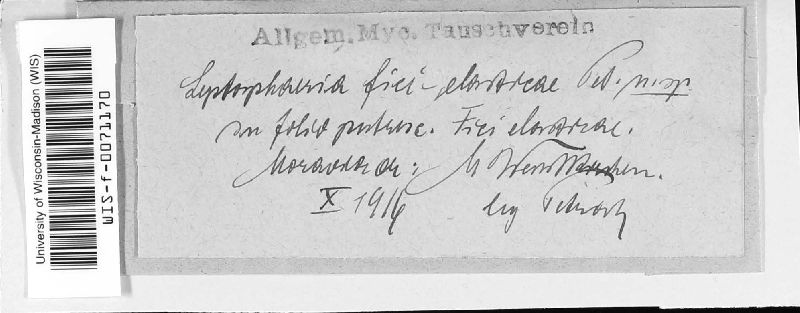 University of Wisconsin-Madison (WIS)
WIS-f-0071170
Allgem. Myc. Tauschverein
Leptosphaeria fici-elasticae Pet. n. sp.
in folio putresc. Fici elasticae.
M. Weisskirchen.
X 1916 leg Petrak